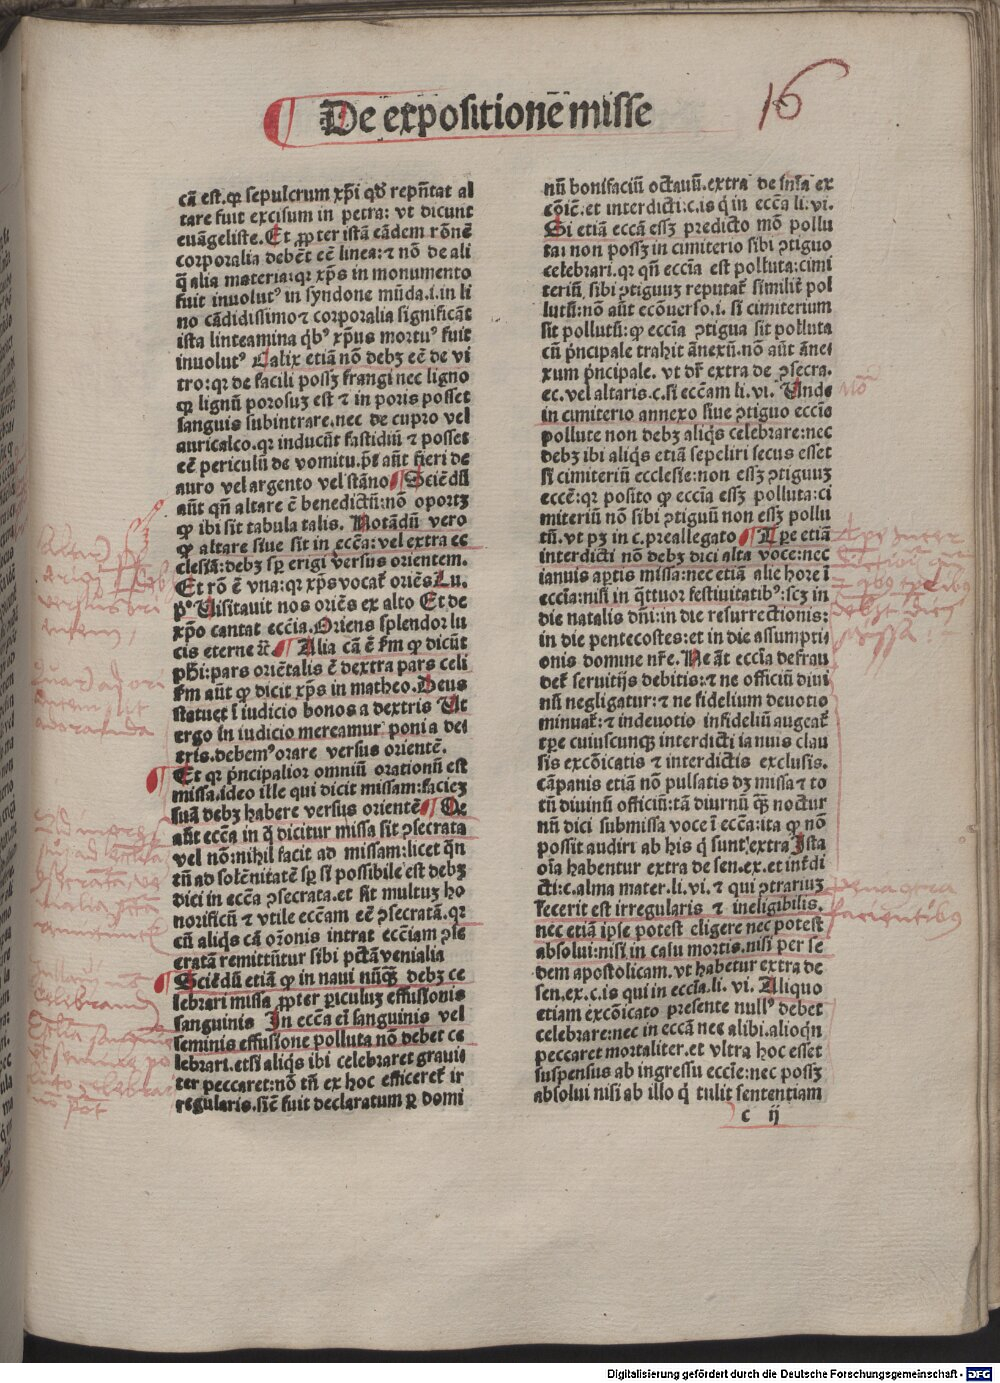 De expositionē misse
16
cā est. qꝛ sepulcrum xp̄i qd̄ rep̄ntat al
tare fuit excisum in petra: vt dicunt
euāgeliste. Et ꝓpter istā eādem rōnē
corporalia debēt eē linea: ⁊ nō de ali
q̄ alia materia: qꝛ xp̄s in monumento
fuit inuolutꝰ in syndone mūda .i. in li
no cādidissimo ⁊ corporalia significāt
ista linteamina q̄bꝰ xp̄us mortuꝰ fuit
inuolutꝰ Calix etiā nō debꝫ eē de vi
tro: qꝛ de facili possꝫ frangi nec ligno
qꝛ lignū porosuꝫ est ⁊ in poris posset
sanguis subintrare. nec de cupro vel
auricalco. qꝛ inducūt fastidiū ⁊ posset
eē periculū de vomitu. p̄t aūt fieri de
auro vel argento vel stāno ¶ Sciēdū
aūt qn̄ altare ē benedictū: nō oportꝫ
ꝙ ibi sit tabula talis. Notādū vero
ꝙ altare siue sit in ecc̄a: vel extra ec
clesiā: debꝫ sꝑ erigi versus orientem.
Et rō ē vna: qꝛ xp̄s vocat᷑ oriēs Lu.
pº Uisitauit nos oriēs ex alto Et de
xp̄o cantat ecc̄ia. Oriens splendor lu
cis eterne ⁊c̄ ¶ Alia cā ē ẜm ꝙ dicūt
ph̄i: pars oriētalis ē dextra pars celi
ẜm aūt ꝙ dicit xp̄s in matheo. Deus
statuet ī iudicio bonos a dextris Ut
ergo in iudicio mereamur poni a dex
tris. debemꝰ orare versus orientē.
¶ Et qꝛ p̄ncipalior omniū orationū est
missa. ideo ille qui dicit missam: facieꝫ
suā debꝫ habere versus orientē ¶ De
aūt ecc̄a in q̄ dicitur missa sit ꝯsecrata
vel nō: nihil facit ad missam: licet qn̄
tū ad solēnitatē sꝑ si possibile est debꝫ
dici in ecc̄a ꝯsecrata. et sit multuꝫ ho
norificū ⁊ vtile ecc̄am eē ꝯsecratā. qꝛ
cū aliq̄s cā or̄onis intrat ecc̄iam ꝯse
cratā remittūtur sibi pctāvenialia
¶ Sciēdū etiā ꝙ in naui nūq̄ꝫ debꝫ ce
lebrari missa ꝓpter ꝑiculuꝫ effusionis
sanguinis In ecc̄a eī sanguinis vel
seminis effusione polluta nō debet ce
lebrari. etsi aliq̄s ibi celebraret graui
ter peccaret: nō tn̄ ex hoc efficeret᷑ ir
regularis. sic̄ fuit declaratum ꝑ domi
nū bonifaciū octauū. extra de sn̄ia ex
cōic̄. et interdicti: c. is q̄ in ecc̄a li. vi.
Si etiā ecc̄a essꝫ predicto mō pollu
ta: non possꝫ in cimiterio sibi ꝯtiguo
celebrari. qꝛ qn̄ ecc̄ia est polluta: cimi
teriū, sibi ꝯtiguuꝫ reputat᷑ similit̄ pol
lutū: nō aūt ecōuerso. i. si cimiterium
sit pollutū: ꝙ ecc̄ia ꝯtigua sit polluta
cū p̄ncipale trahit ānexū. nō aūt āne
xum p̄ncipale. vt dr̄ extra de ꝯsecra.
ec. vel altaris. c. si ecc̄am li. vi. Unde
in cimiterio annexo siue ꝯtiguo ecc̄ie
pollute non debꝫ aliq̄s celebrare: nec
debꝫ ibi aliq̄s etiā sepeliri secus esset
si cimiteriū ecclesie: non essꝫ ꝯtiguuꝫ
ecc̄e: qꝛ posito ꝙ ecc̄ia essꝫ polluta: ci
miteriū nō sibi ꝯtiguū non essꝫ pollu
tū. vt pꝫ in c. preallegato ¶ Tp̄e etiā
interdicti nō debꝫ dici alta voce: nec
ianuis aꝑtis missa: nec etiā alie hore ī
ecc̄ia: nisi in q̄ttuor festiuitatibꝰ: scꝫ in
die natalis dn̄i: in die resurrectionis:
in die pentecostes: et in die assumpti
onis domine nr̄e. Ne āt ecc̄ia defrau
det᷑ seruitijs debitis: ⁊ ne officiū diui
nū negligatur: ⁊ ne fidelium deuotio
minuat᷑: ⁊ indeuotio infideliū augeat᷑
tp̄e cuiuscunqꝫ interdicti ianuis clau
sis excōicatis ⁊ interdictis exclusis.
cāpanis etiā nō pulsatis dꝫ missa ⁊ to
tū diuinū officiū: tā diurnū q̄ꝫ noctur
nū dici submissa voce ī ecc̄a: ita ꝙ nō
possit audiri ab his q̄ sunt extra Ista
oīa habentur extra de sen. ex. et int̄di
cti: c. alma mater. li. vi. ⁊ qui ꝯtrariuꝫ
fecerit est irregularis ⁊ ineligibilis.
nec etiā ipse potest eligere nec potest
absolui: nisi in casu mortis. nisi per se
dem apostolicam. vt habetur extra de
sen. ex. c. is qui in ecc̄ia. li. vi. Aliquo
etiam excōicato presente nullꝰ debet
celebrare: nec in ecc̄ā nec alibi. alioqn̄
peccaret mortaliter. et vltra hoc esset
suspensus ab ingressu ecc̄ie: nec possꝫ
absolui nisi ab illo q̄ tulit sententiam
c ij
Digitalisierung gefördert durch die Deutsche Forschungsgemeinschaft - DFG